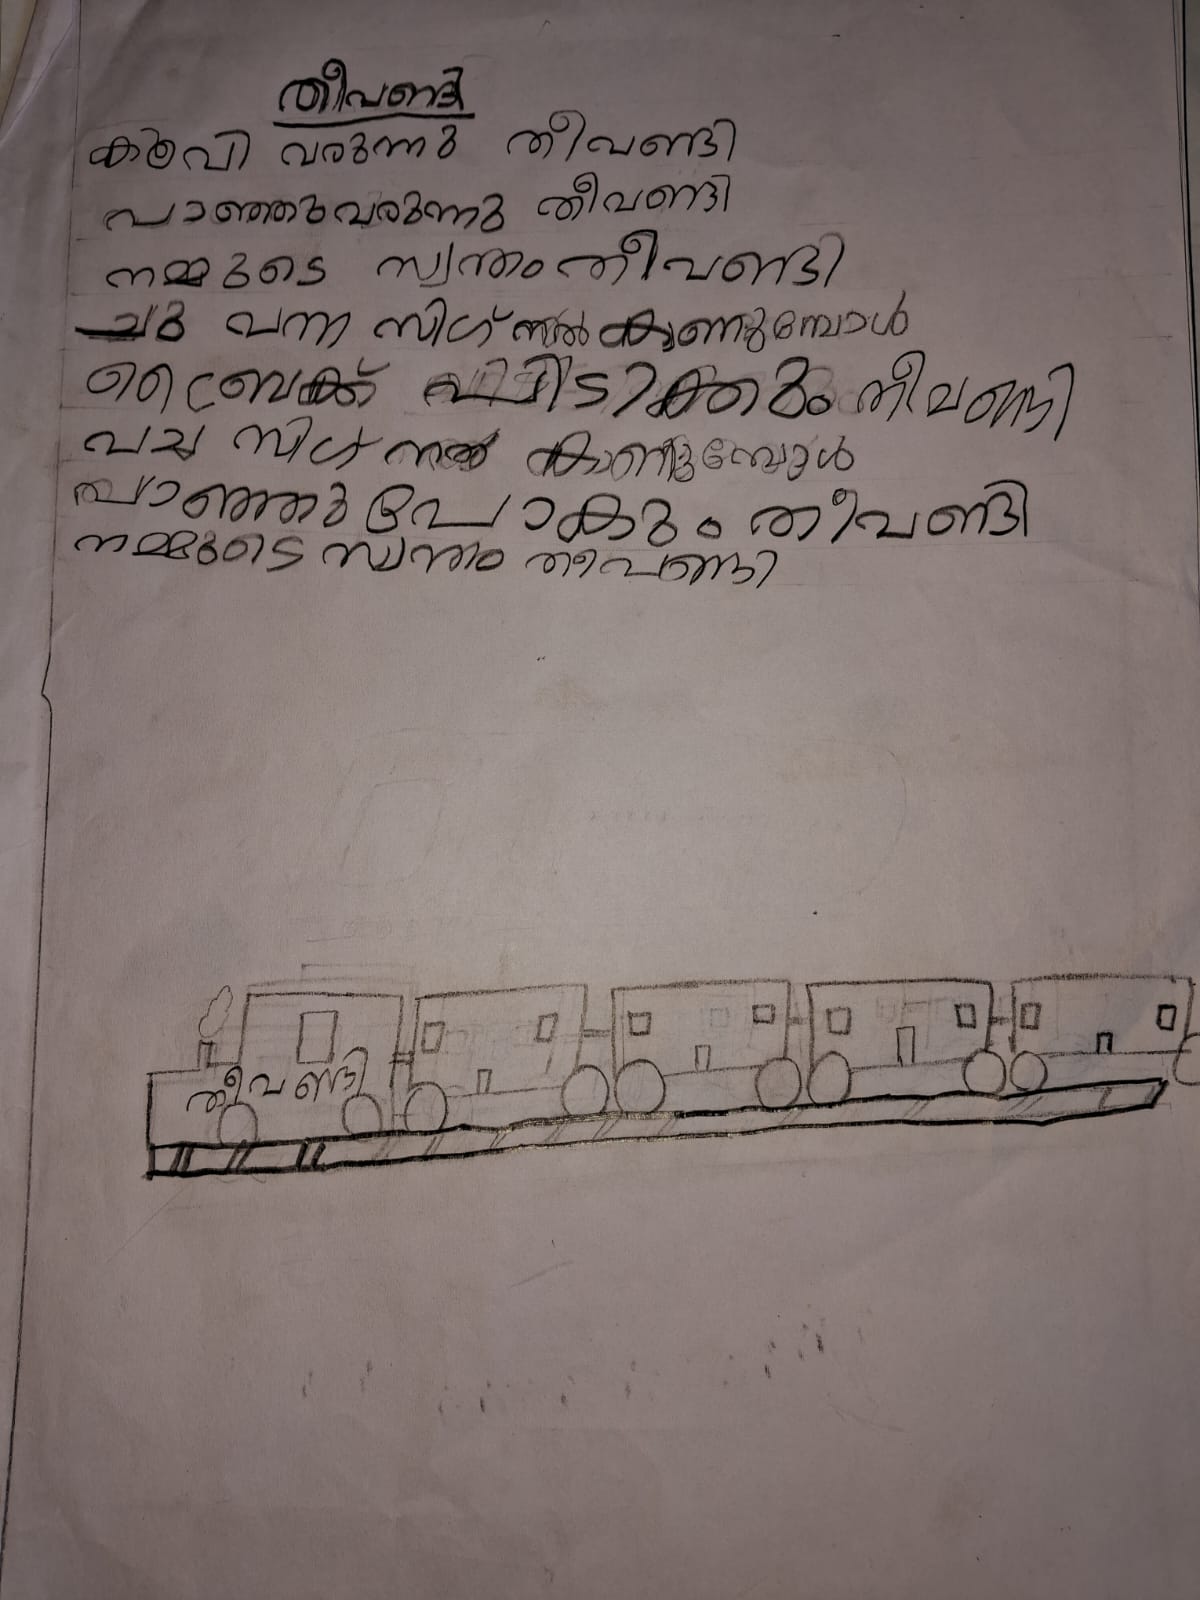 തീവണ്ടി
കൂവി വരുന്നു തീവണ്ടി
പാഞ്ഞുവരുന്നു തീവണ്ടി
നമ്മുടെ സ്വന്തം തീവണ്ടി
ചുവന്ന സിഗ്നൽ കാണുമ്പോൾ
ബ്രൈക്ക് തീവണ്ടി
പച്ച സിഗ്നൽ കാണുമ്പോൾ
പാഞ്ഞു പോകും തീവണ്ടി
നമ്മുടെ സ്വന്തം തീവണ്ടി
തീവണ്ടി